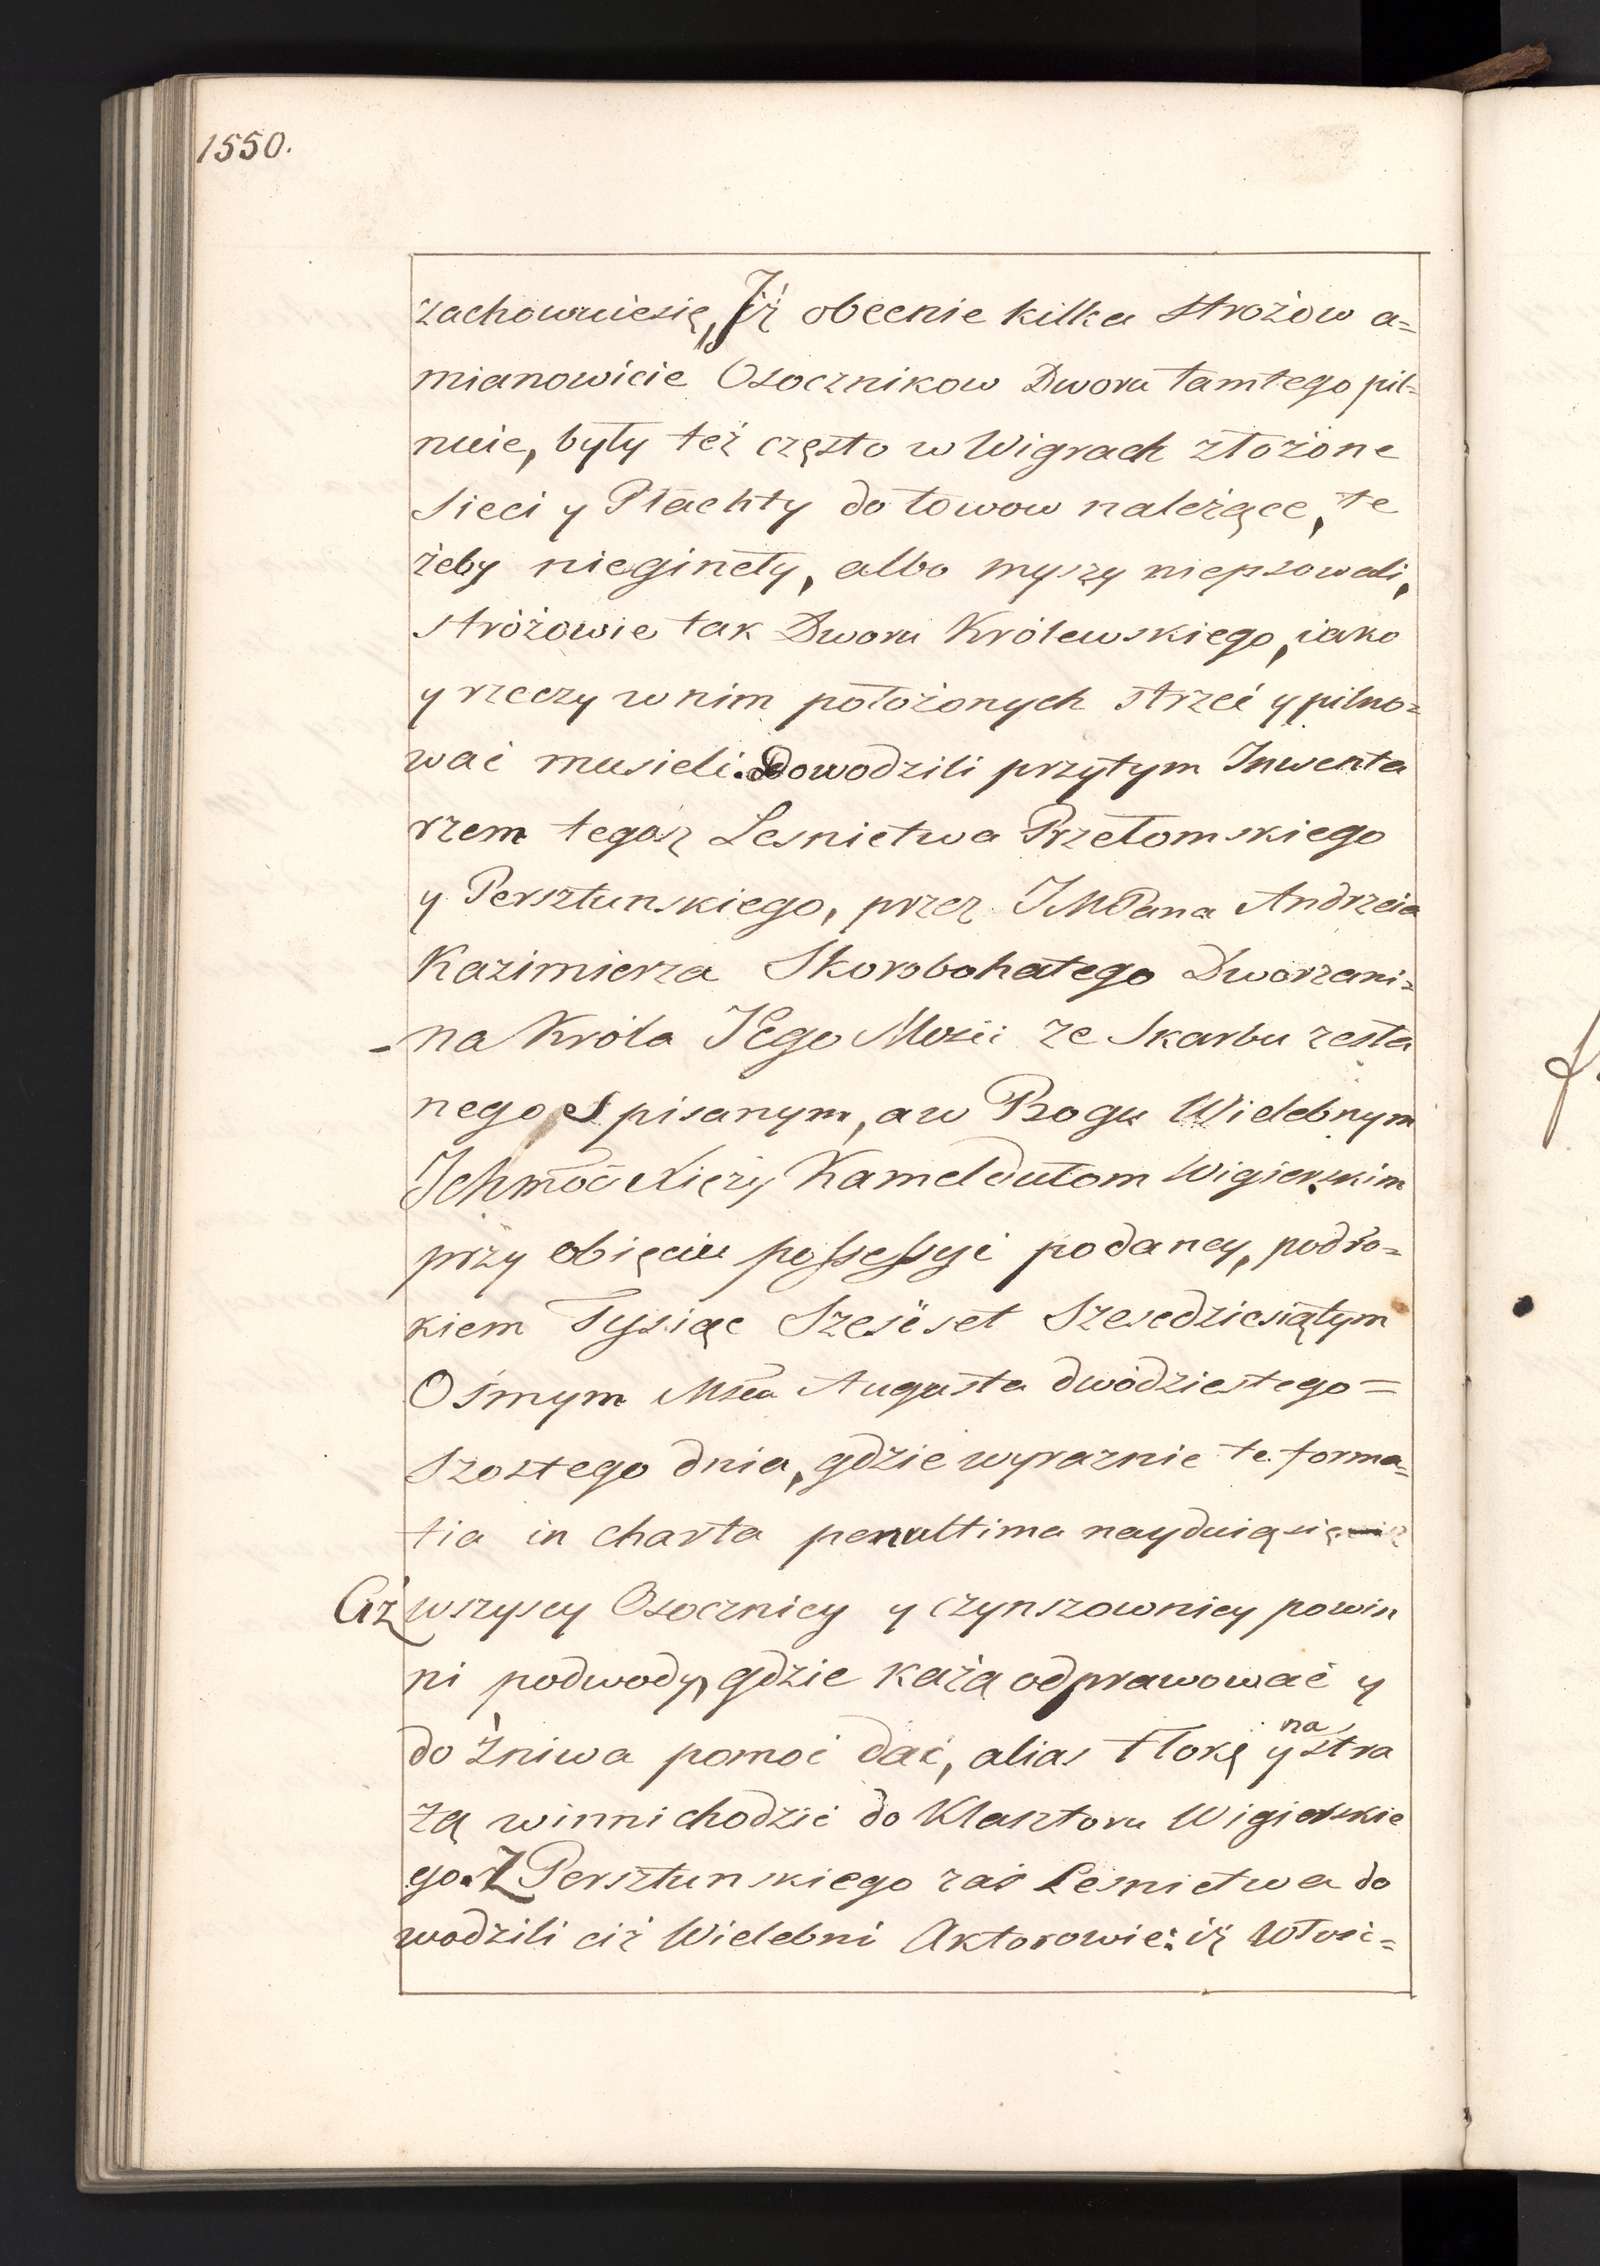 1550.
zachowuiesię, Iż obecnie kilka strożow a=
mianowicie Osocznikow Dworu tamtego pil=
nuie, były też często w Wigrach złożone
Sieci y Płachty do łowow należące, te
żeby nieginęły, albo myszy niepsowali,
stróżowie tak Dworu Królewskiego, iako
y rzeczy w nim położonych strzeć y pilno=
wać musieli. Dowodzili przytym Inwenta
rzem tegosz Lesnictwa Przełomskiego
y Persztunskiego, przez IMPana Andrzeia
Kazimierza Skorobohatego Dworzani=
-na Króla IEgo Mości ze Skarbu zesła
nego Spisanym, a w Bogu Wielebnym
Ichmość Xięży Kameldułom Wigierskim
przy obięciu possessyi podaney, pod ro=
kiem Tysiąc Sześćset Szescdziesiątym
Osmym Msca Augusta dwódziestego=
Szostego dnia, gdzie wyraznie te forma=
tia in charta penultima nayduią się
Ciż wszyscy Osocznicy y czynszownicy powin
ni podwody, gdzie każą odprawować y
do żniwa pomoć dać, alias tłokę y na stra
żą winni chodzić do Klasztoru Wigierskie
go. Z Persztunskiego zaś Lesnictwa do
wodzili ciż Wielebni Aktorowie: iż Włośc=